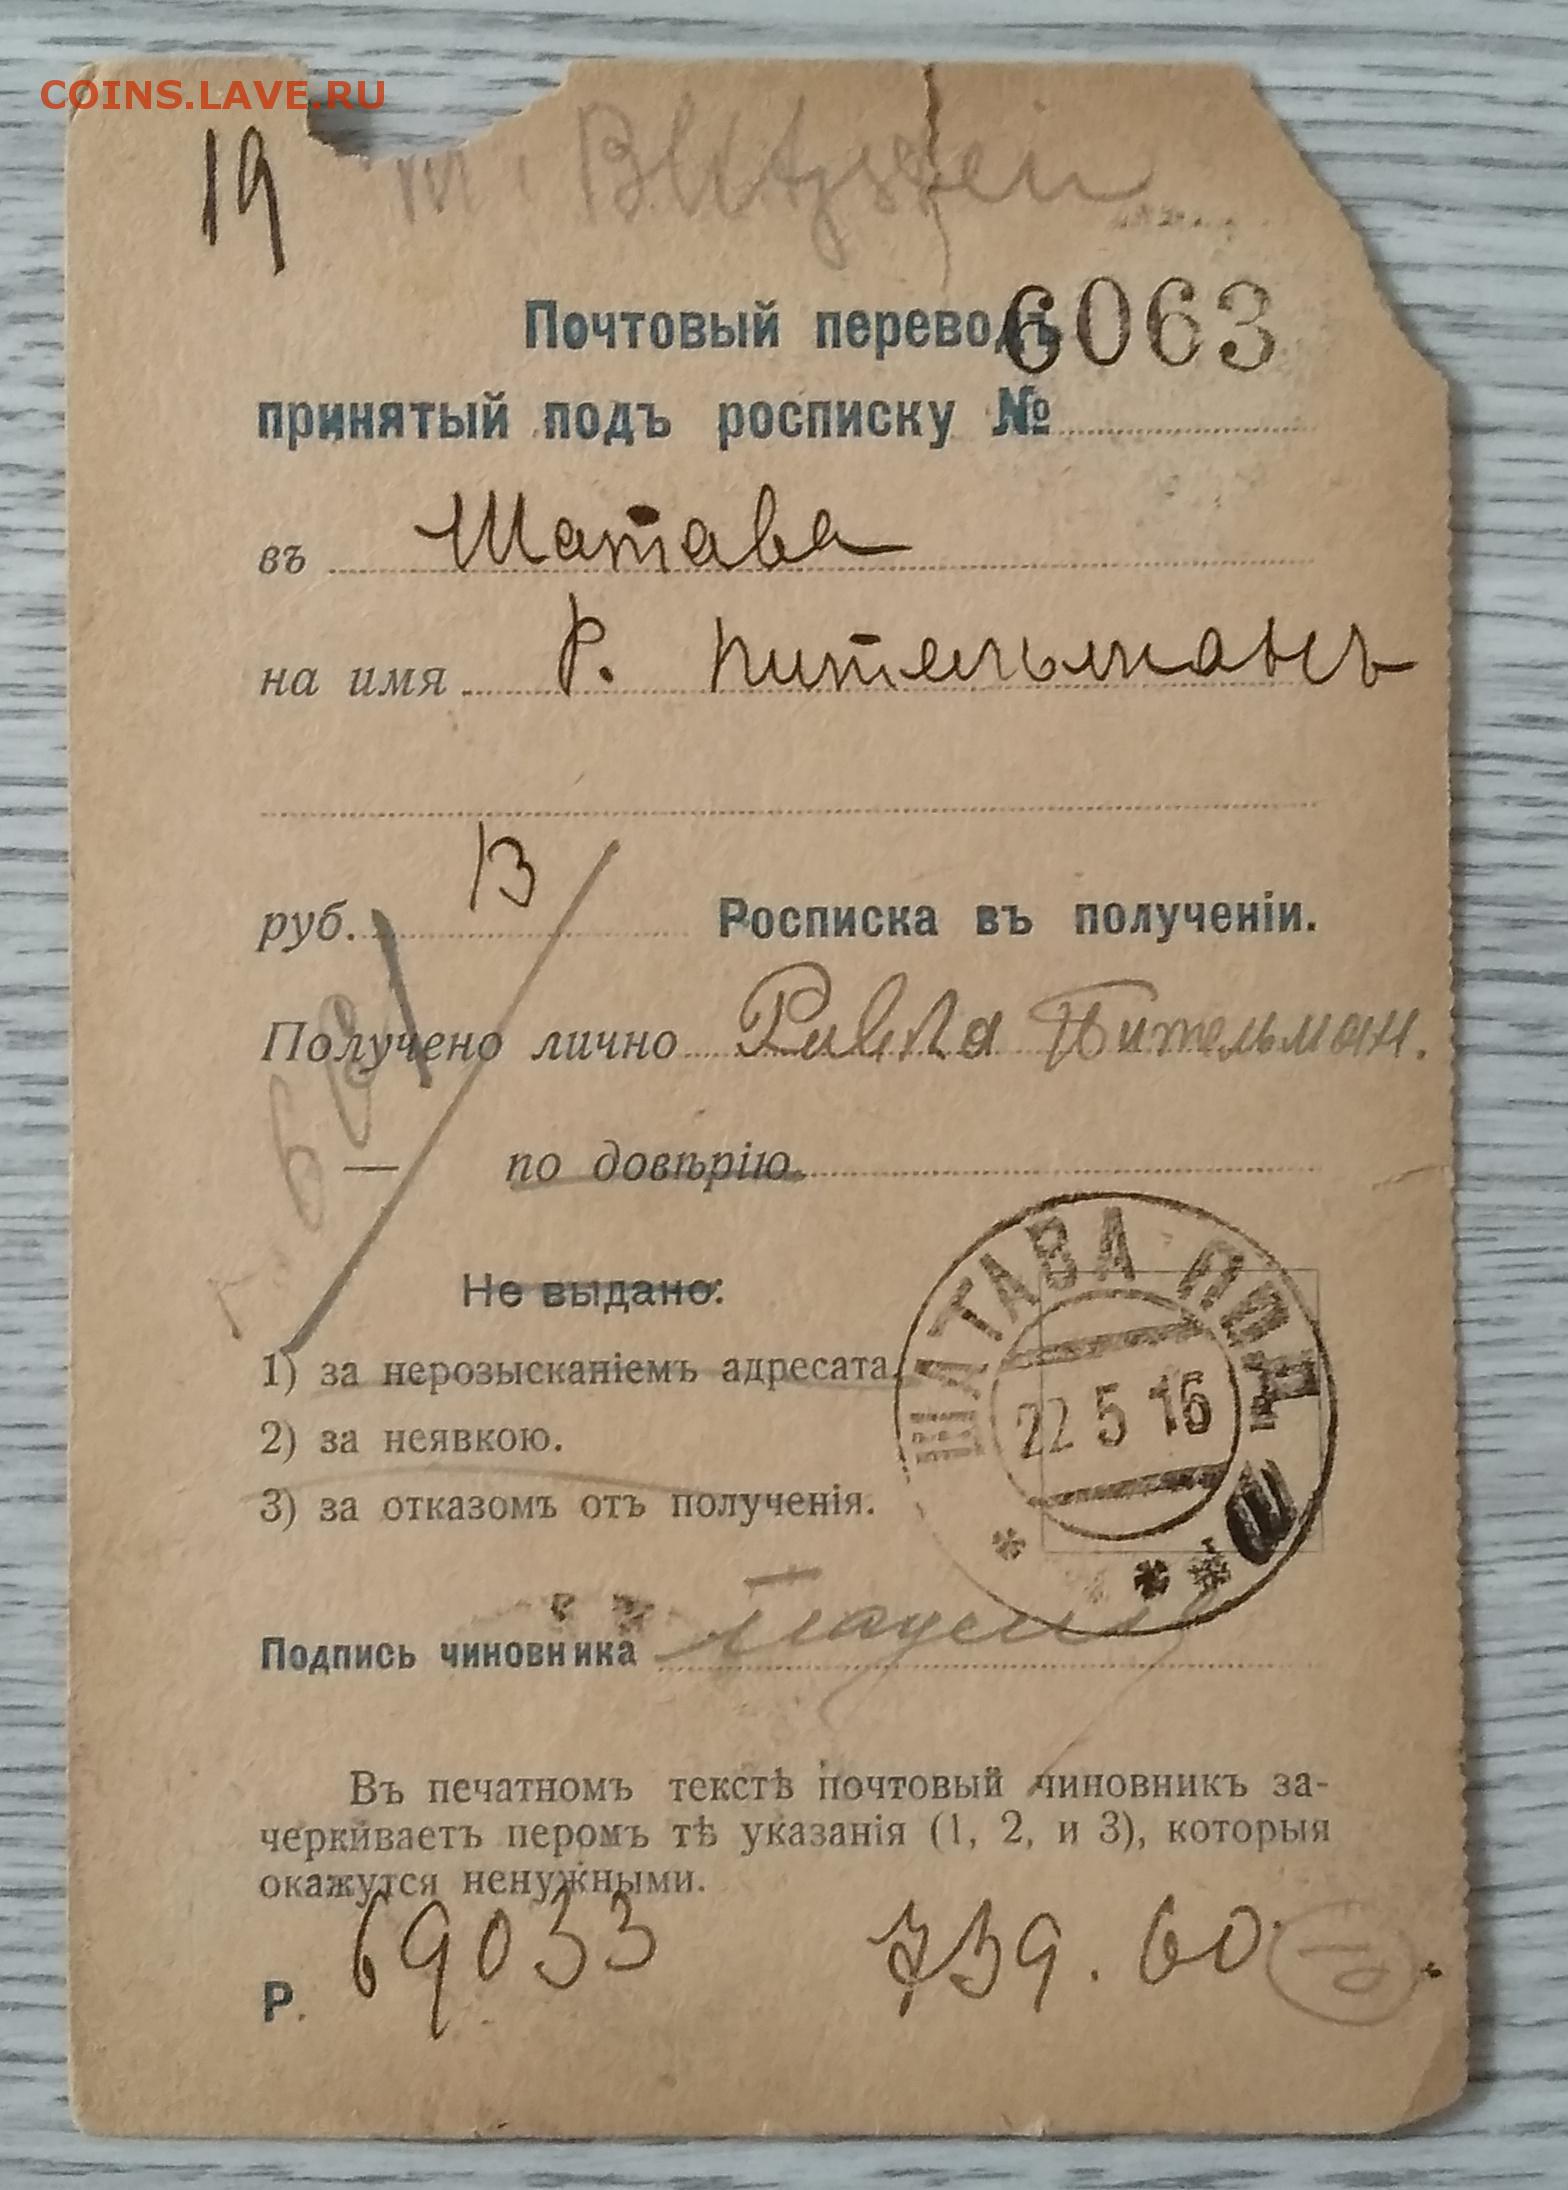 COINS.LAVE.RU
19 m. Blitzstein
Почтовый переводъ 6063
принятый подъ росписку №
въ Шатава
на имя Р. Пительманъ
руб. 13 Росписка въ полученіи.
Получено лично Ривля Пительман.
— по довѣрію
Не выдано:
1) за нерозысканіемъ адресата.
2) за неявкою.
3) за отказомъ отъ полученія.
ШАТАВА ПОД
22 5 16
Подпись чиновника
Въ печатномъ текстѣ почтовый чиновникъ за-
черкиваетъ перомъ тѣ указанія (1, 2, и 3), которыя
окажутся ненужными.
Р. 69033 739.60